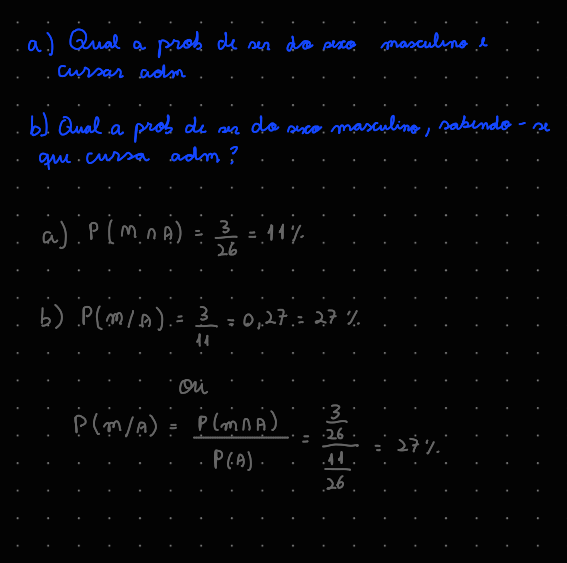 a) Qual a prob de ser do sexo masculino e
cursar adm
b) Qual a prob de ser do sexo masculino, sabendo-se
que cursa adm?
a) P(M ∩ A) = 3/26 = 11%
b) P(M/A) = 3/11 = 0,27 = 27%
ou
P(M/A) = P(M∩A)/P(A) = (3/26)/(11/26) = 27%